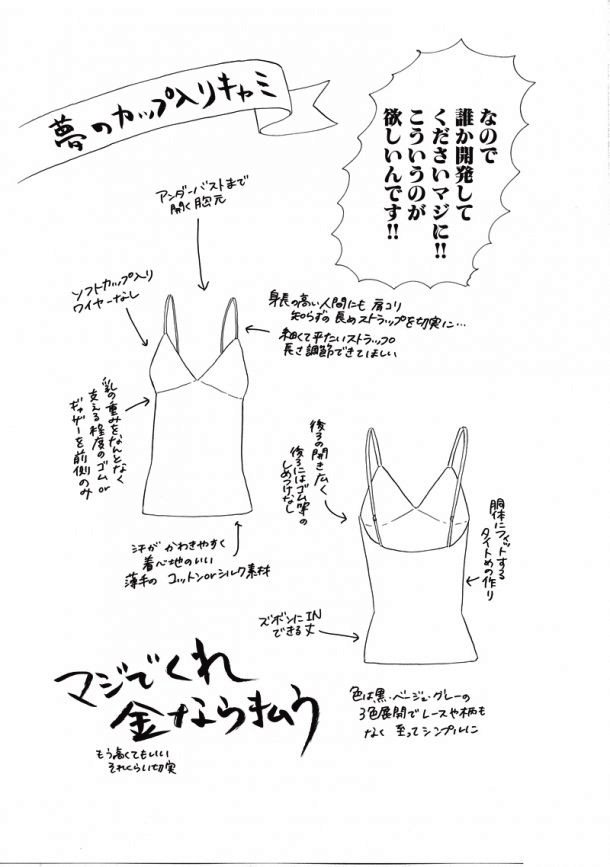 夢のカップ入りキャミ
なので
誰か開発して
くださいマジに!!
こういうのが
欲しいんです!!
アンダーバストまで
開く胸元
ソフトカップ入り
ワイヤーなし
身長の高い人間にも 肩コリ
知らずの長めストラップを切実に…
細くて平たいストラップ
長さ調節できてほしい
乳の重みをなんとなく
支える程度のゴムor
ギャザーを前側のみ
後ろの開き広く
後ろにはゴム等の
しめつけなし
胴体にフィットする
タイトめの作り
汗が かわきやすく
着心地のいい
薄手の コットンorシルク素材
ズボンにIN
できる丈
マジでくれ
金なら払う
もう高くてもいい
それくらい切実
色は黒・ベージュ・グレーの
3色展開でレースや柄も
なく 至ってシンプルに